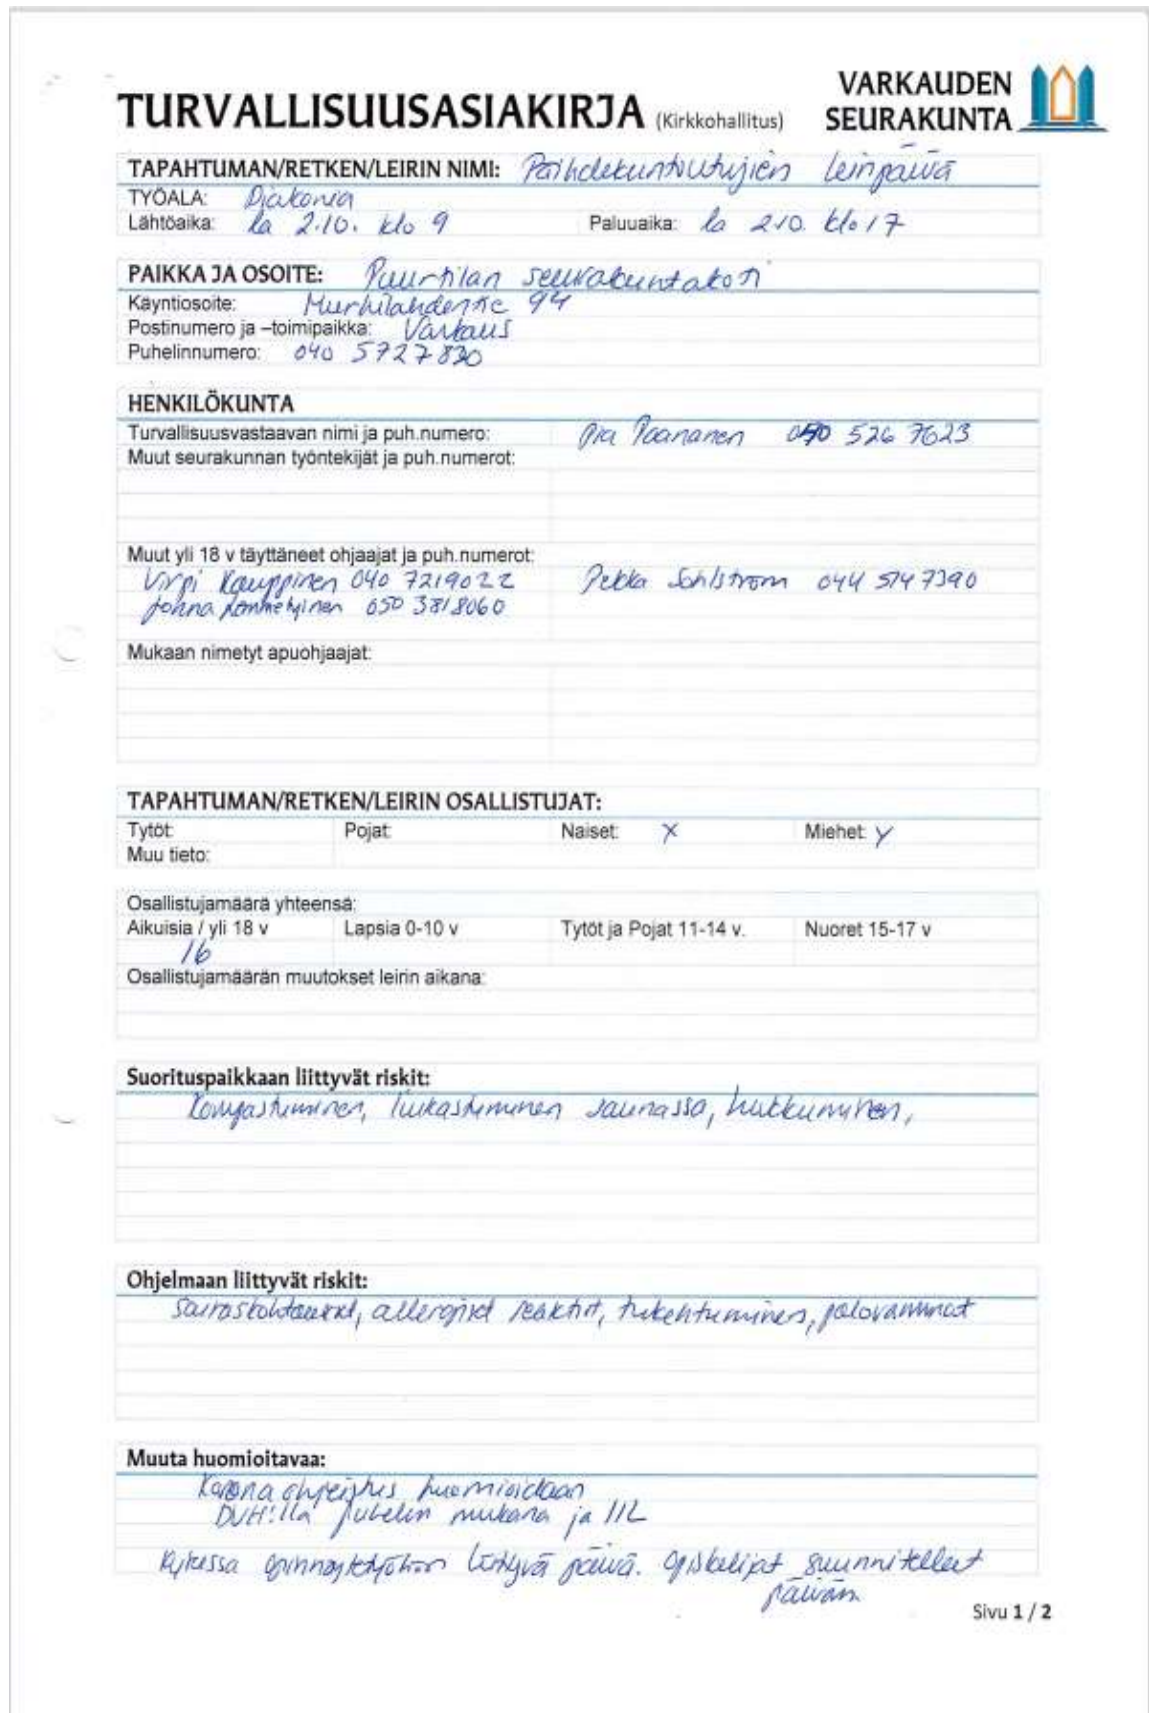 VARKAUDEN
SEURAKUNTA
TURVALLISUUSASIAKIRJA (Kirkkohallitus)
TAPAHTUMAN/RETKEN/LEIRIN NIMI: Päihdekuntoutujien leiripäivä
TYÖALA: Diakonia
Lähtöaika: la 2.10. klo 9 Paluuaika: la 2.10. klo 17
PAIKKA JA OSOITE: Puurtilan seurakuntakoti
Käyntiosoite: 94
Postinumero ja –toimipaikka: Varkaus
Puhelinnumero: 040 5727830
HENKILÖKUNTA
Turvallisuusvastaavan nimi ja puh.numero: Pia Paananen 526 7623
Muut seurakunnan työntekijät ja puh.numerot:
Muut yli 18 v täyttäneet ohjaajat ja puh.numerot:
Virpi Kauppinen 040 7219022 Pekka 044 514 7390
050 3818060
Mukaan nimetyt apuohjaajat:
TAPAHTUMAN/RETKEN/LEIRIN OSALLISTUJAT:
Tytöt: Pojat: Naiset: X Miehet: X
Muu tieto:
Osallistujamäärä yhteensä:
Aikuisia / yli 18 v Lapsia 0-10 v Tytöt ja Pojat 11-14 v. Nuoret 15-17 v
16
Osallistujamäärän muutokset leirin aikana:
Suorituspaikkaan liittyvät riskit:
Kompastuminen, liukastuminen saunassa, hukkuminen,
Ohjelmaan liittyvät riskit:
sairaskohtaukset, allergiset reaktiot, tukehtuminen, palovammat
Muuta huomioitavaa:
Korona ohjeistus huomioidaan
puhelin mukana ja 112
Kyseessä opinnäytetyöhön liittyvä päivä. Opiskelijat suunnitelleet
päivän
Sivu 1 / 2